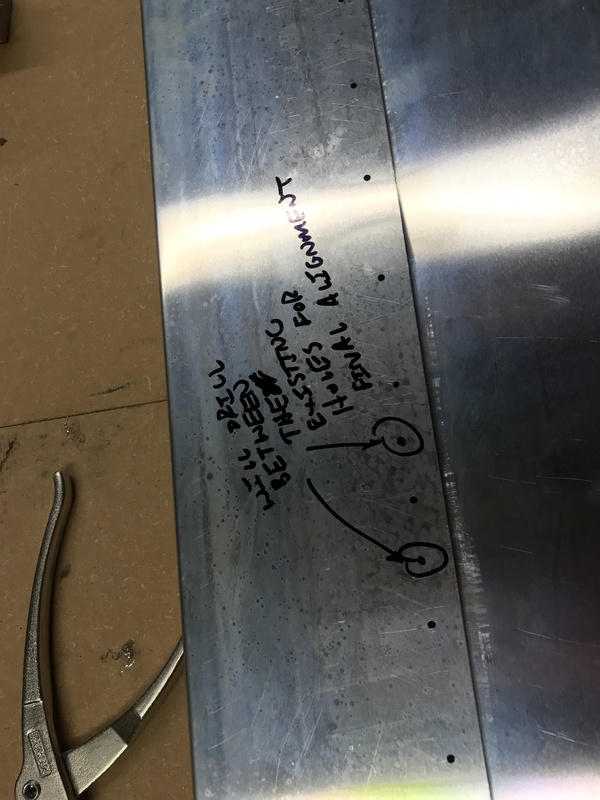 WILL DRILL
BETWEEN
THE
EXISTING
HOLES FOR
FINAL ALIGNMENT